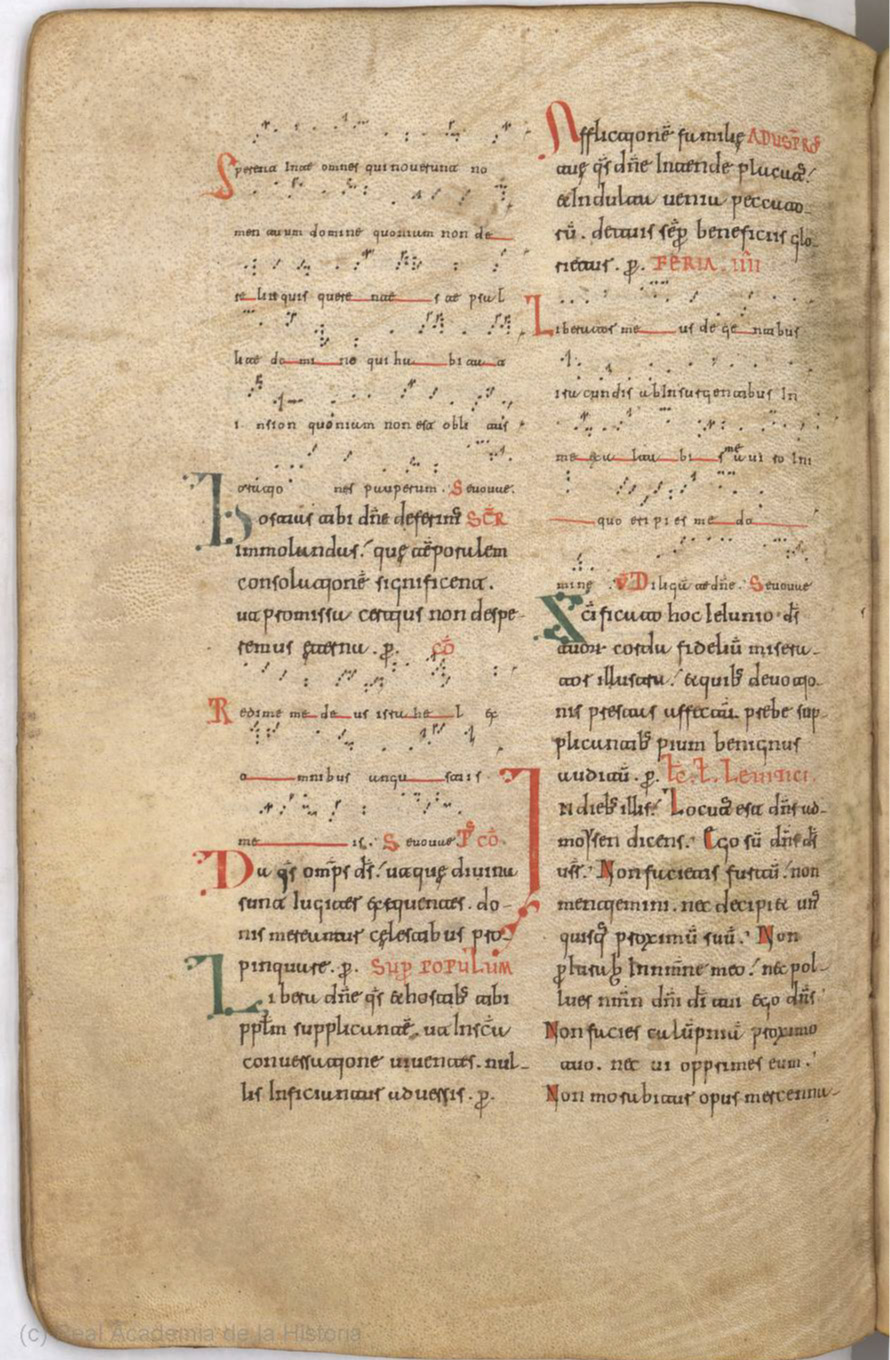 Sperent In te omnes qui noverunt no
men tuum domine quonium non de
re linquis quere ntes te psal
lite do mi no qui ha bi ta t
i nsion quonium non est obli tus
oratio nes pauperum. Seuouae.
Hostias tibi dñe deferim9 SCR
immolandas. quę tēporalem
consolationē significent.
ut promissa certius non despe
remus ęterna. p. cō
Redime me de us israhe l ex
o mnibus angu stiis
me is. Seuouae P cō.
Da q̄s omp̄s d̄s. ut quę diuina
sunt iugiter exequentes. do-
nis mereamur cęlestibus pro-
pinquare. p. Sup POPULUM
Libera dn̄e q̄s & hostib3 tibi
pplm supplicantē. ut In sc̄a
conuersatione uiuentes. nul-
lis Inficiantur aduersis. p.
Afflictionē familię ADUSPRS
tuę q̄s dn̄e Intende placat9.
& Indulta uenia peccato
rū. de tuis sēp beneficiis glo
rietur. p. FERIA. IIII
Liberator me us de ge ntibus
iracundis ab Insurgentibus In
me exa lta bi s me a uiro Ini
quo eripies me do
mine V Diligā te dn̄e. Seuouae
Scīficato hoc Ieiunio. d̄s
tuor corda fidelium misera
tor illustra. & quib3 deuotio
nis prestas affectū. prebe sup
plicantib3 pium benignus
auditū. p. Lc. L. Leuitici.
In dieb3 illis. Locut9 est dn̄s ad
moysen dicens. Ego sū dn̄s d̄s
ur̄. Non facietis furtū. non
mentiemini. nec decipiet un9
quisq3 proximū suū. Non
piurab3 In nomīne meo. nec pol-
lues nmn dn̄i di tui ego dn̄s
Non facies calūpniā proximo
tuo. nec ui opprimes eum.
Non morabitur opus mercenna-
(c) Real Academia de la Historia